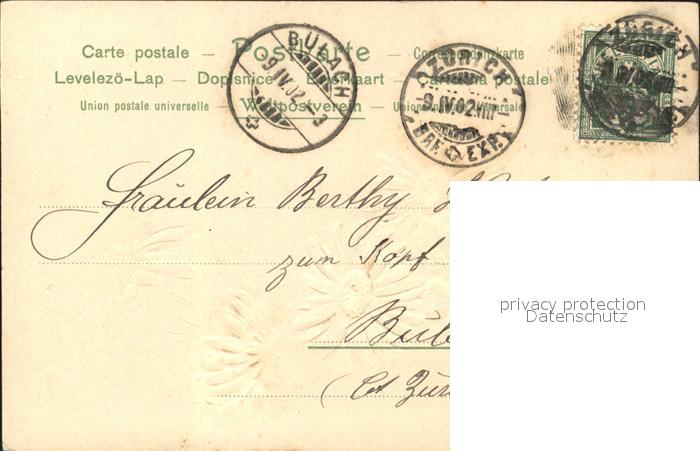 Carte postale – Postkarte – Correspondenzkarte
Levelezö-Lap – Dopisnice – Briefkaart – Cartolina postale
Union postale universelle – Weltpostverein – Unione postale universale
BÜLACH
9.IV.02.-3
ZÜRICH
9.IV.02.VIII-
BRF. EXP.
Fräulein Berthy
zum Kopf
Bül
(Ct Zür
privacy protection
Datenschutz